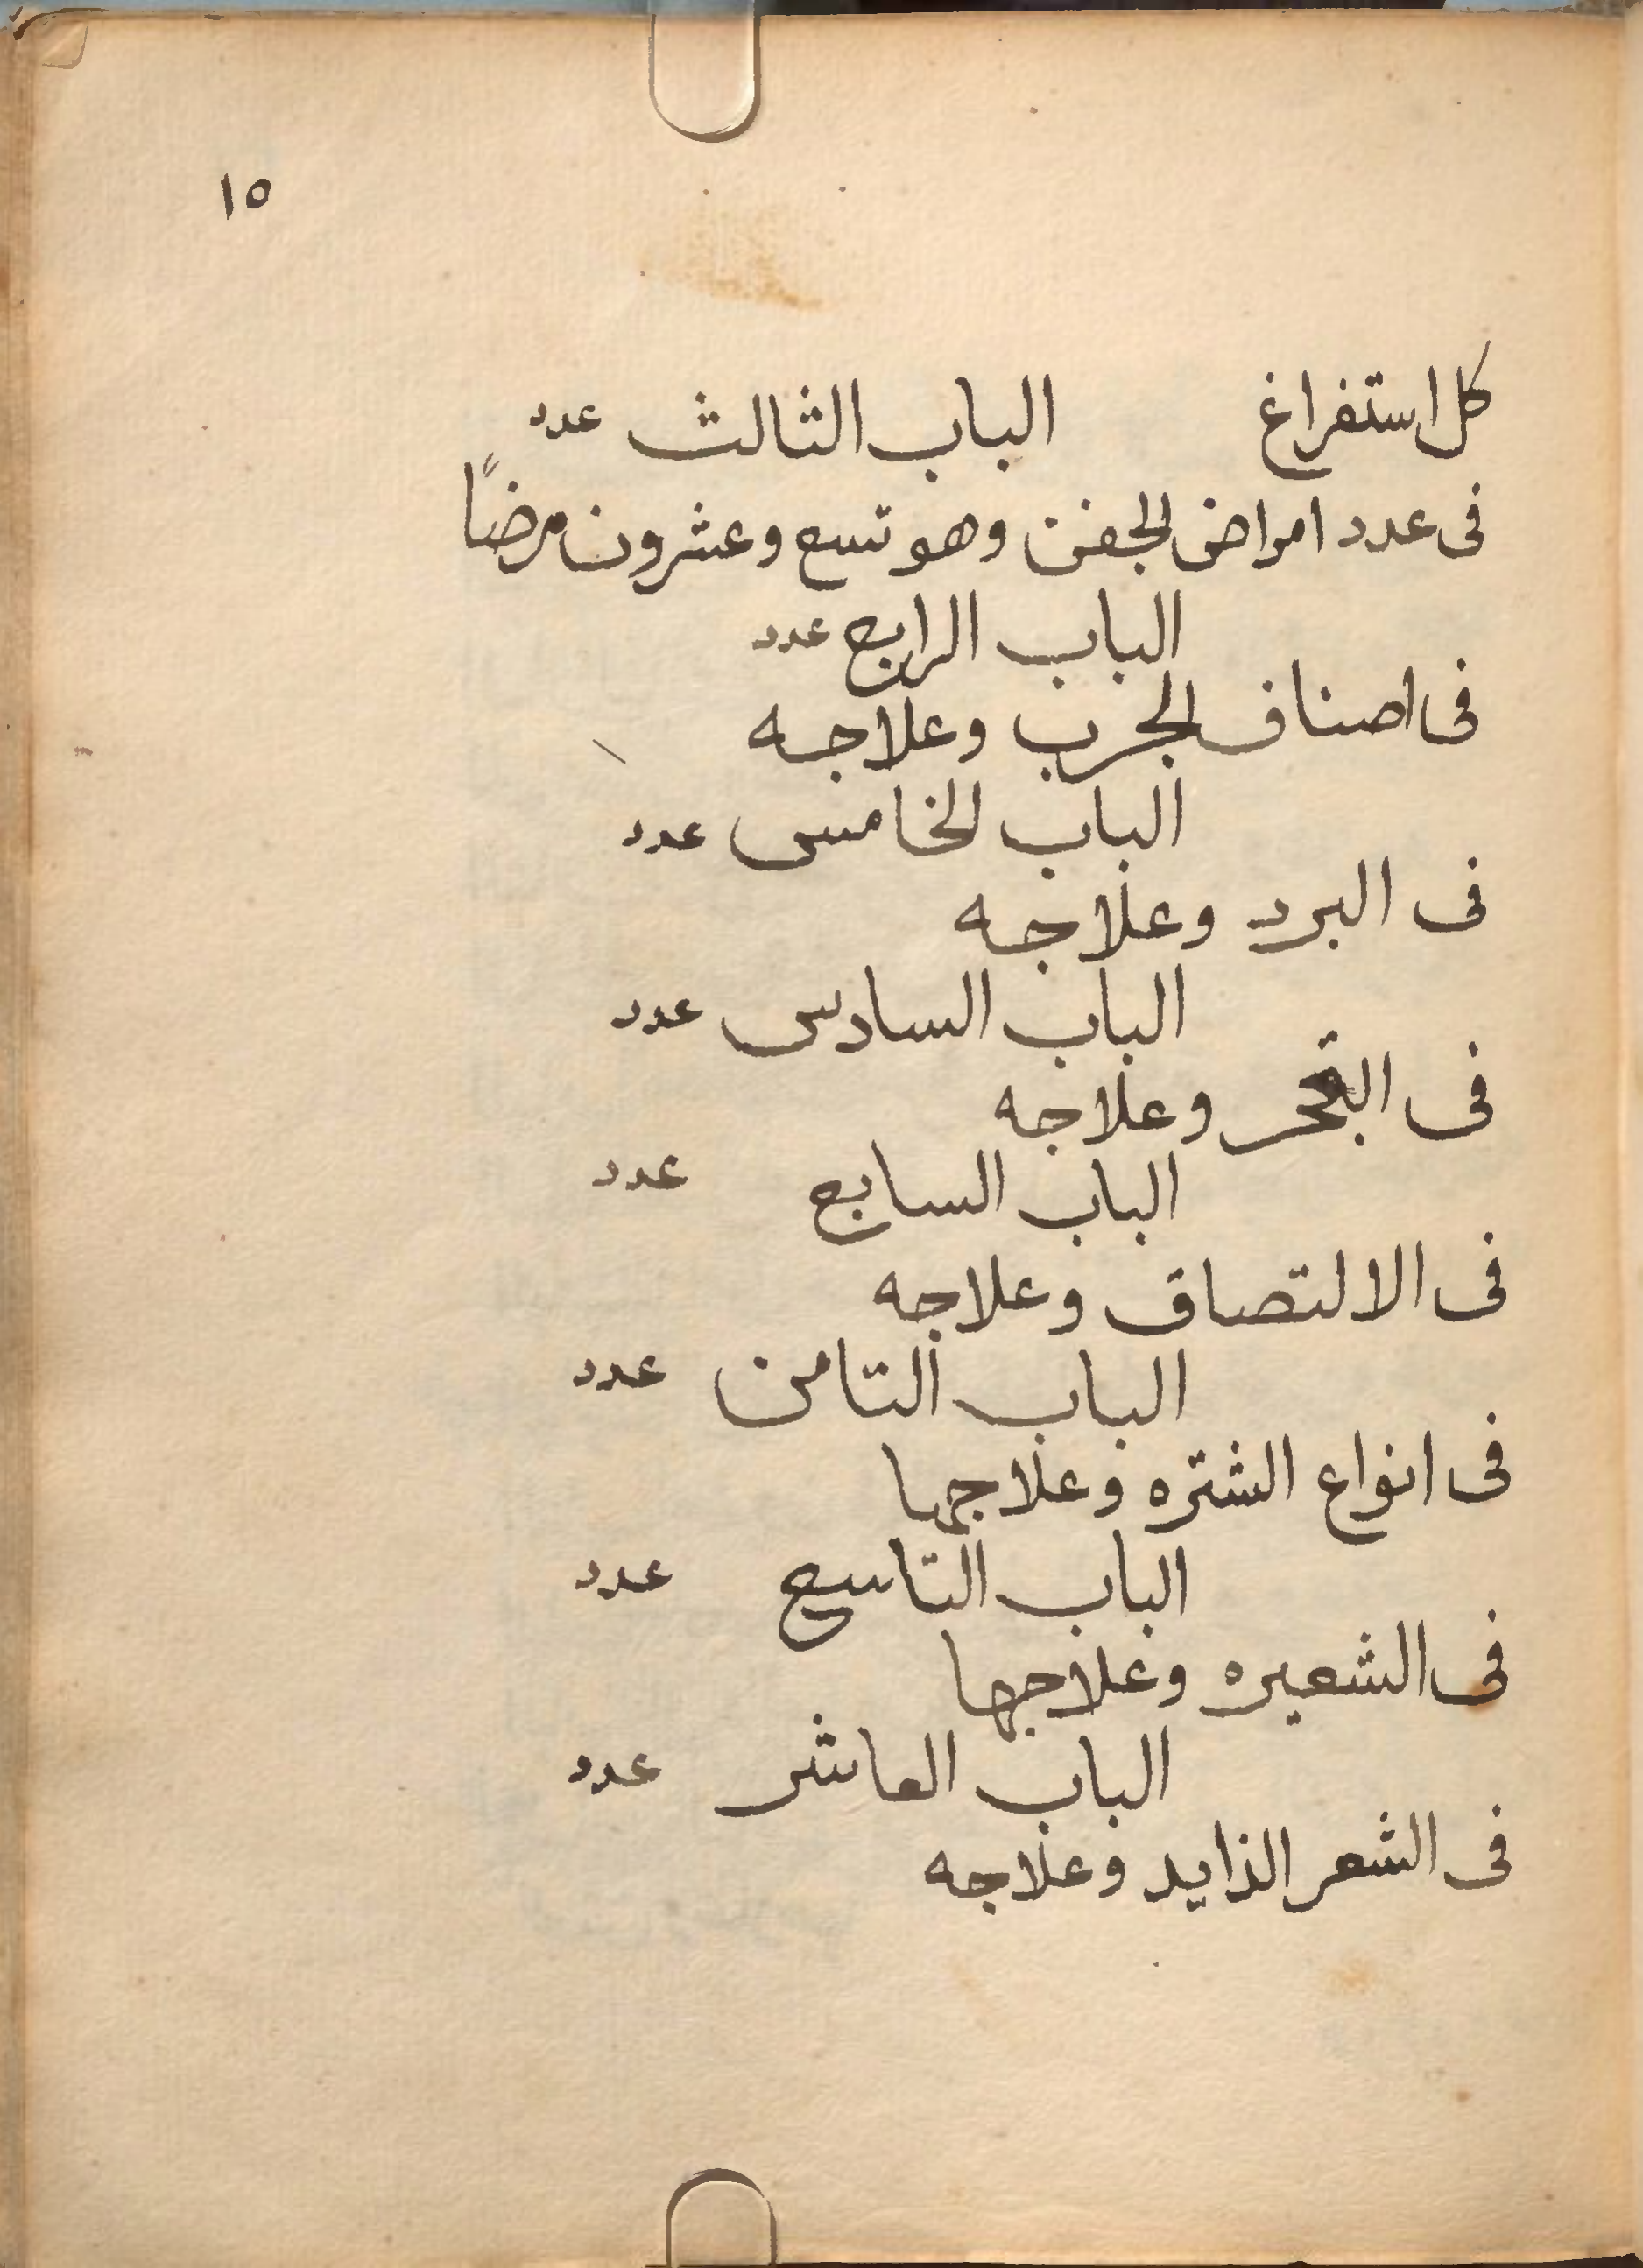 ١٥
كل استفراغ الباب الثالث عدد
فى عدد امراض الجفن وهو تسع وعشرون مرضًا
الباب الرابع عدد
فى اصناف الجرب وعلاجه
الباب الخامس عدد
فى البرد وعلاجه
الباب السادس عدد
فى وعلاجه
الباب السابع عدد
فى الالتصاق وعلاجه
الباب التامن عدد
فى انواع الشتره وعلاجها
الباب التاسع عدد
فى الشعيره وعلاجها
الباب العاشر عدد
فى الشعر الذايد وعلاجه